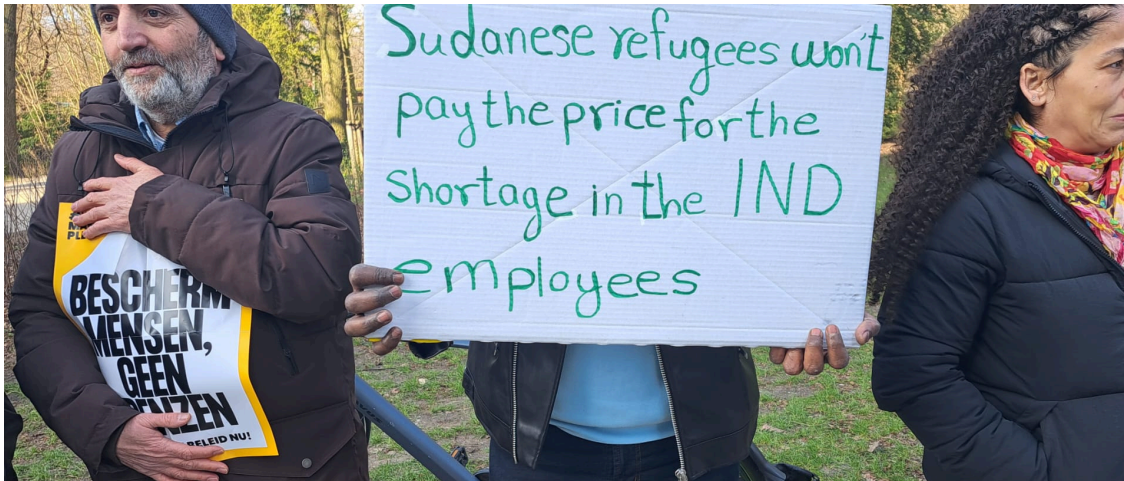 Sudanese refugees won't
pay the price for the
shortage in the IND
employees
BESCHERM
MENSEN,
GEEN
BELEID NU!